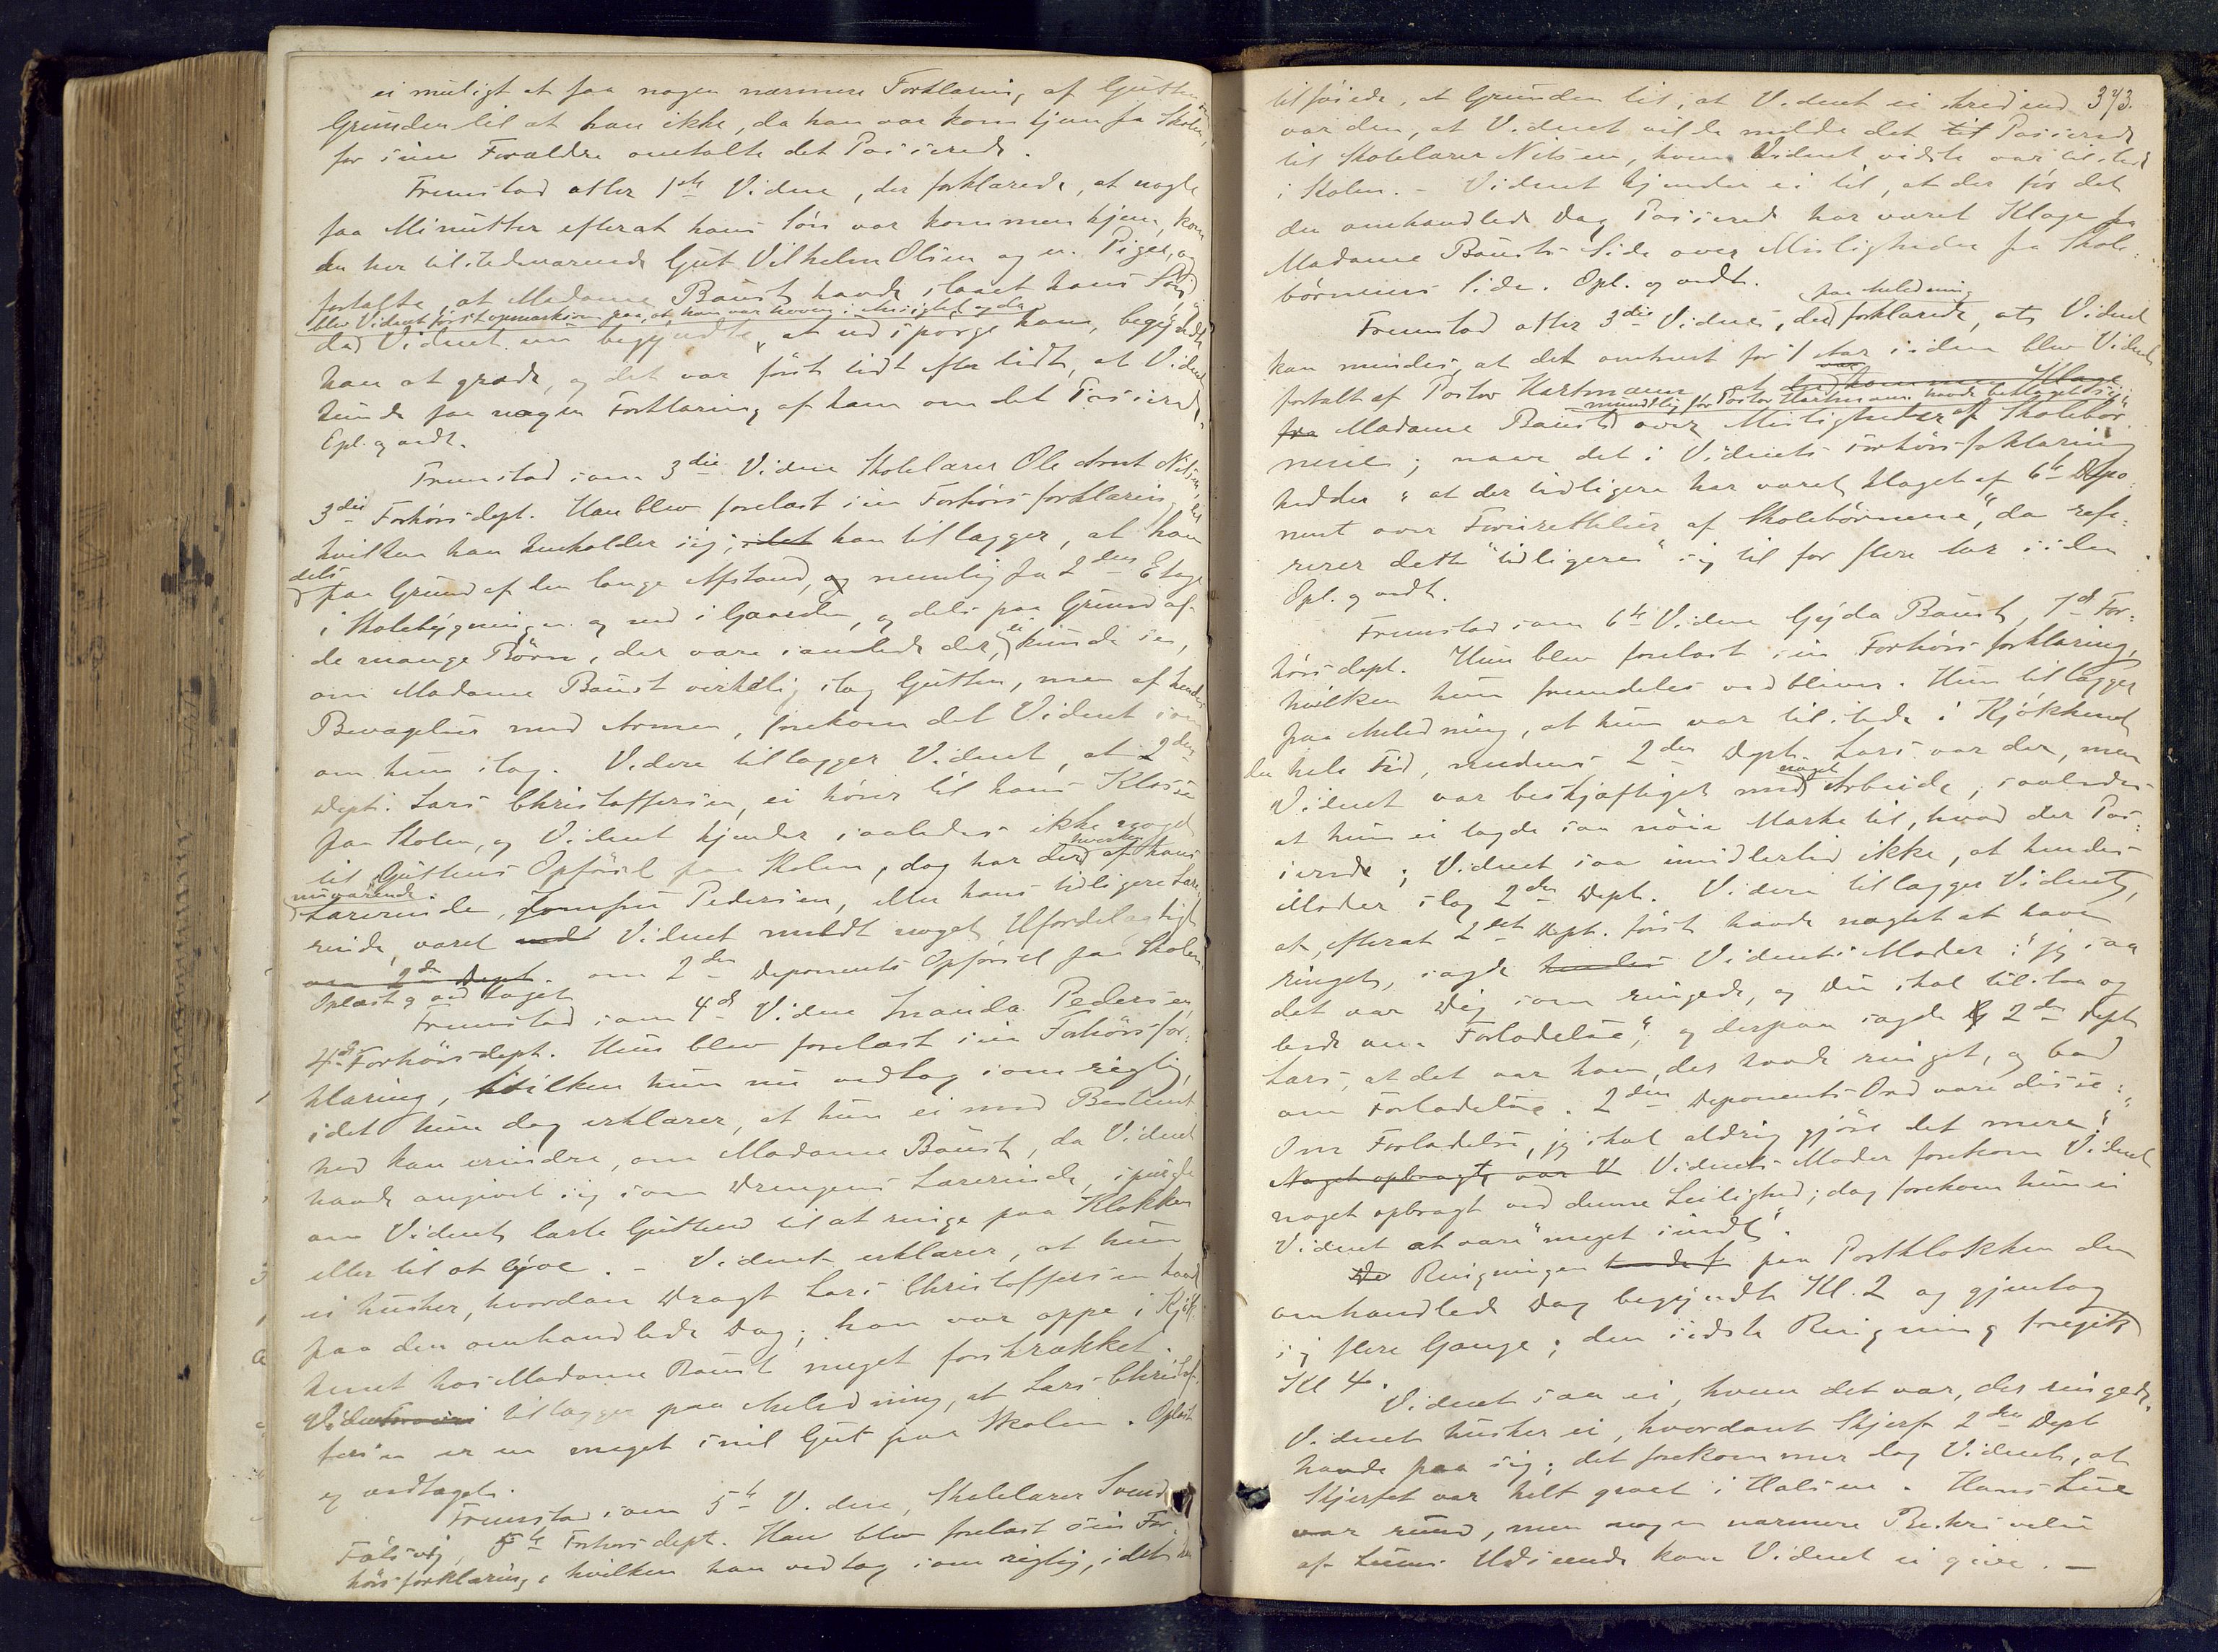 ei muligt at faa nogen nærmere Forklaring af Gutten om
Grunden til at han ikke, da han var kom hjem fra Skolen,
for sine Forældre omtalte det Passerede.
Fremstod atter 1ste Vidne, der forklarede, at nogle
faa Minutter efterat hans Søn var kommen hjem, kom
den her tilstedeværende Gut Vilhelm Olsen og en Pige, og
fortalte, at Madame Baust havde slaaet hans Søn
blev Vidnet først opmærksom paa, at han var hoven i Ansigtet, og da
da Vidnet nu begyndte at udspørge ham, begyndte
han at græde, og det var først lidt efter lidt, at Vidnet
kunde faa nogen Forklaring af ham om det Passerede.
Opl. og vedt.
Fremstod som 3die Vidne Skolelærer Ole Arnt Nilsen,
3die Forhørsdept. Han blev forelæst sin Forhørsforklaring, til
hvilken han henholder sig, idet han tillægger, at han
dels
paa Grund af den lange Afstand, og nemlig fra 2den Etage
i Skolebygningen og ned i Gaarden, og dels paa Grund af
de mange Børn, der vare samlede der, ei kunde se,
om Madame Baust virkelig slog Gutten, men af hendes
Bevægelser med Armen, forekom det Vidnet som
om hun slog. Videre tillægger Vidnet, at 2den
Dept. Lars Christoffersen, ei hører til hans Klasse
paa Skolen, og Vidnet kjender saaledes ikke noget
til Guttens Opførsel paa Skolen, dog har der hverken af hans
nuværende
Lærerinde, Jomfru Pedersen, eller hans tidligere Lære
rinde, været Vidnet meldt noget Ufordelagtigt
om 2den Dept. om 2den Deponents Opførsel paa Skolen
Oplæst og vedtaget
Fremstod som 4de Vidne Inanda Pedersen,
4de Forhørsdept. Hun blev forelæst sin Forhørsfor-
klaring, hvilken hun nu vedtog som rigtig,
idet hun dog erklærer, at hun ei med Bestemt
hed kan erindre, om Madame Baust, da Vidnet
havde angivet sig som Drengens Lærerinde, spurgte
om Vidnet lærte Gutten til at ringe paa Klokken
eller til at lyve. – Vidnet erklærer, at hun
ei husker, hvordan Dragt Lars Christoffersen havde
paa den omhandlede Dag; han var oppe i Kjøk-
kenet hos Madame Baust meget forskrækket.
Vidnet tillægger paa Anledning, at Lars Christof-
fersen er en meget snil Gut paa Skolen. Oplæst
og vedtaget.
Fremstod som 5te Vidne, Skolelærer Svend
Forhørsdept. Han blev forelæst sin For-
hørsforklaring, hvilken han vedtog som rigtig, idet han
tilføiede, at Grunden til, at Vidnet ei skred ind 373.
var den, at Vidnet vilde melde det til Passerede
til Skolelærer Nilsen, hvem Vidnet vidste var tilstede
i Skolen. – Vidnet kjender ei til, at der før det
den omhandlede Dag Passerede har været Klage fra
Madame Bausts Side over Misligheder fra Skole-
børnenes Side. Opl. og vedt.
paa Anledning
Fremstod atter 3die Vidne, der forklarede, at Vidnet
kan mindes, at det omtrent for 1 Aar siden blev Vidnet
fortalt af Pastor Hartmann at der var kommen Klage
mundtlig for Pastor Hartmann havde beklaget sig
fra Madame Baust over Misligheder af Skolebør
nene; naar det i Vidnets Forhørsforklaring
hedder "at der tidligere har været klaget af 6te Depo-
nent over Forurettelser af Skolebørnene", da refe-
rerer dette "tidligere" sig til for flere Aar siden.
Opl. og vedt.
Fremstod som 6te Vidne Gyda Baust, 7de For-
hørsdept. Hun blev forelæst sin Forhørsforklaring,
hvilken hun fremdeles vedbliver. Hun tillægger
paa Anledning, at hun var tilstede i Kjøkkenet
den hele Tid, medens 2den Dept. Lars var der, men
Vidnet var beskjæftiget med noget Arbeide, saaledes
at hun ei lagde saa nøie Mærke til, hvad der Pas-
serede; Vidnet saa imidlertid ikke, at hendes
Moder slog 2den Dept. Videre tillægger Vidnet,
at, efterat 2den Dept. først havde nægtet at have
ringet, sagde hendes Vidnets Moder: "jeg saa
det var Dig som ringede, og Du skal tilstaa og
bede om Forladelse", og derpaa sagde 2den Dept
Lars, at det var ham, der havde ringet, og bad
om Forladelse. 2den Deponents Ord vare disse:
"Om Forladelse, jeg skal aldrig gjøre det mere."
Noget opbragt var V Vidnets Moder forekom Vidnet
noget opbragt ved denne Leilighed; dog forekom hun ei
Vidnet at være "meget sindt".
De Ringningen paa Portklokken den
omhandlede Dag begyndte Kl. 2 og gjentog
sig flere Gange; den sidste Ringning foregik
Kl 4.
Vidnet saa ei, hvem det var, der ringede.
Vidnet husker ei, hvordant Skjerf 2den Dept
havde paa sig; det forekommer dog Vidnet, at
Skjerfet var helt graat i Halsen. Hans Lue
var rund, men nogen nærmere Beskrivelse
af Luens Udseende kan Vidnet ei give. –